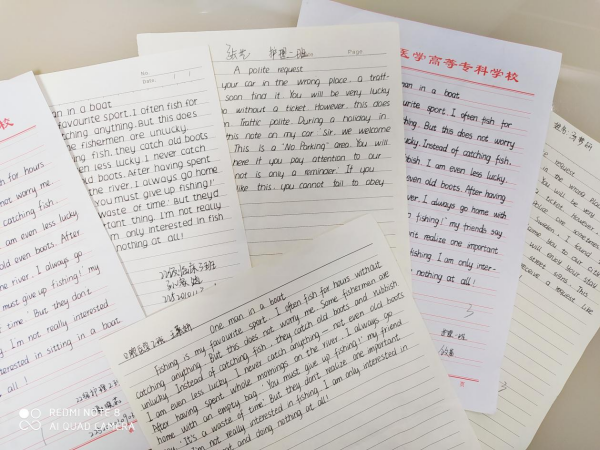 校
h for hours
not worry me.
catching fish,
I am even less lucky.
old even boots. After
he river. I always go
must give up fishing!" my
te of time." But they don't
ly. I'm not really interested
rested in sitting in a boat
all!
No.
Date
man in a boat
favourite sport. I often fish for
thing anything. But this does
e fishermen are unlucky.
ing fish, they catch old boots
even less lucky. I never catch
old boots. After having spent
the river. I always go home
You must give up fishing!"
waste of time." But they'd
rtant thing. I'm not really
m only interested in fish
nothing at all!
护理一班
Page
A polite request
your car in the wrong place. a traff-
soon find it. You will be very lucky
o without a ticket. However. this does
n. Traffic polite. During a holiday in
this note on my car "Sir. we welcome
This is a "No Parking" area. You will
here if you pay attention to our
not is only a reminder." If you
like this, you cannot fail to obey
医学高等专科学校
man in a boat
urite sport. I often fish for
thing. But this does not worry
lucky. Instead of catching fish,
bbish. I am even less lucky.
even old boots. After having
er. I always go home with
fishing!" my friends say
n't realize one important
fishing. I am only inter-
nothing at all!
护理一班
e request
in the wrong place
You will be very
ticket. However,
Sweden, I found
come you to our
enjoy your stay
street signs. This
receive a request like
One man in a boat
Fishing is my favourite sport. I often fish for hours without
catching anything. But this does not worry me. Some fishermen are
unlucky. Instead of catching fish, they catch old boots and rubbish
I am even less lucky. I never catch anything — not even old boots.
After having spent whole mornings on the river. I always go
home with an empty bag. "You must give up fishing!" my friend
say. "It's a waste of time." But they don't realize one important
I'm not really interested in fishing. I am only interested in
at and doing nothing at all!
REDMI NOTE 8
AI QUAD CAMERA